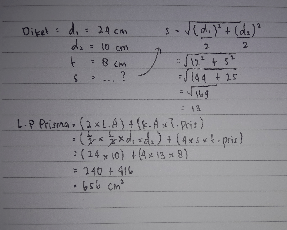 Diket : d₁ = 24 cm
d₂ = 10 cm
t = 8 cm
s = ... ?
s = √(d₁)² + (d₂)²
2 2
= √12² + 5²
= √144 + 25
= √169
= 13
L.P Prisma = (2 x L.A) + (K.A x t. pris)
= (2 x ½ x d₁ x d₂) + (4 x s x t. pris)
= (24 x 10) + (4 x 13 x 8)
= 240 + 416
= 656 cm²